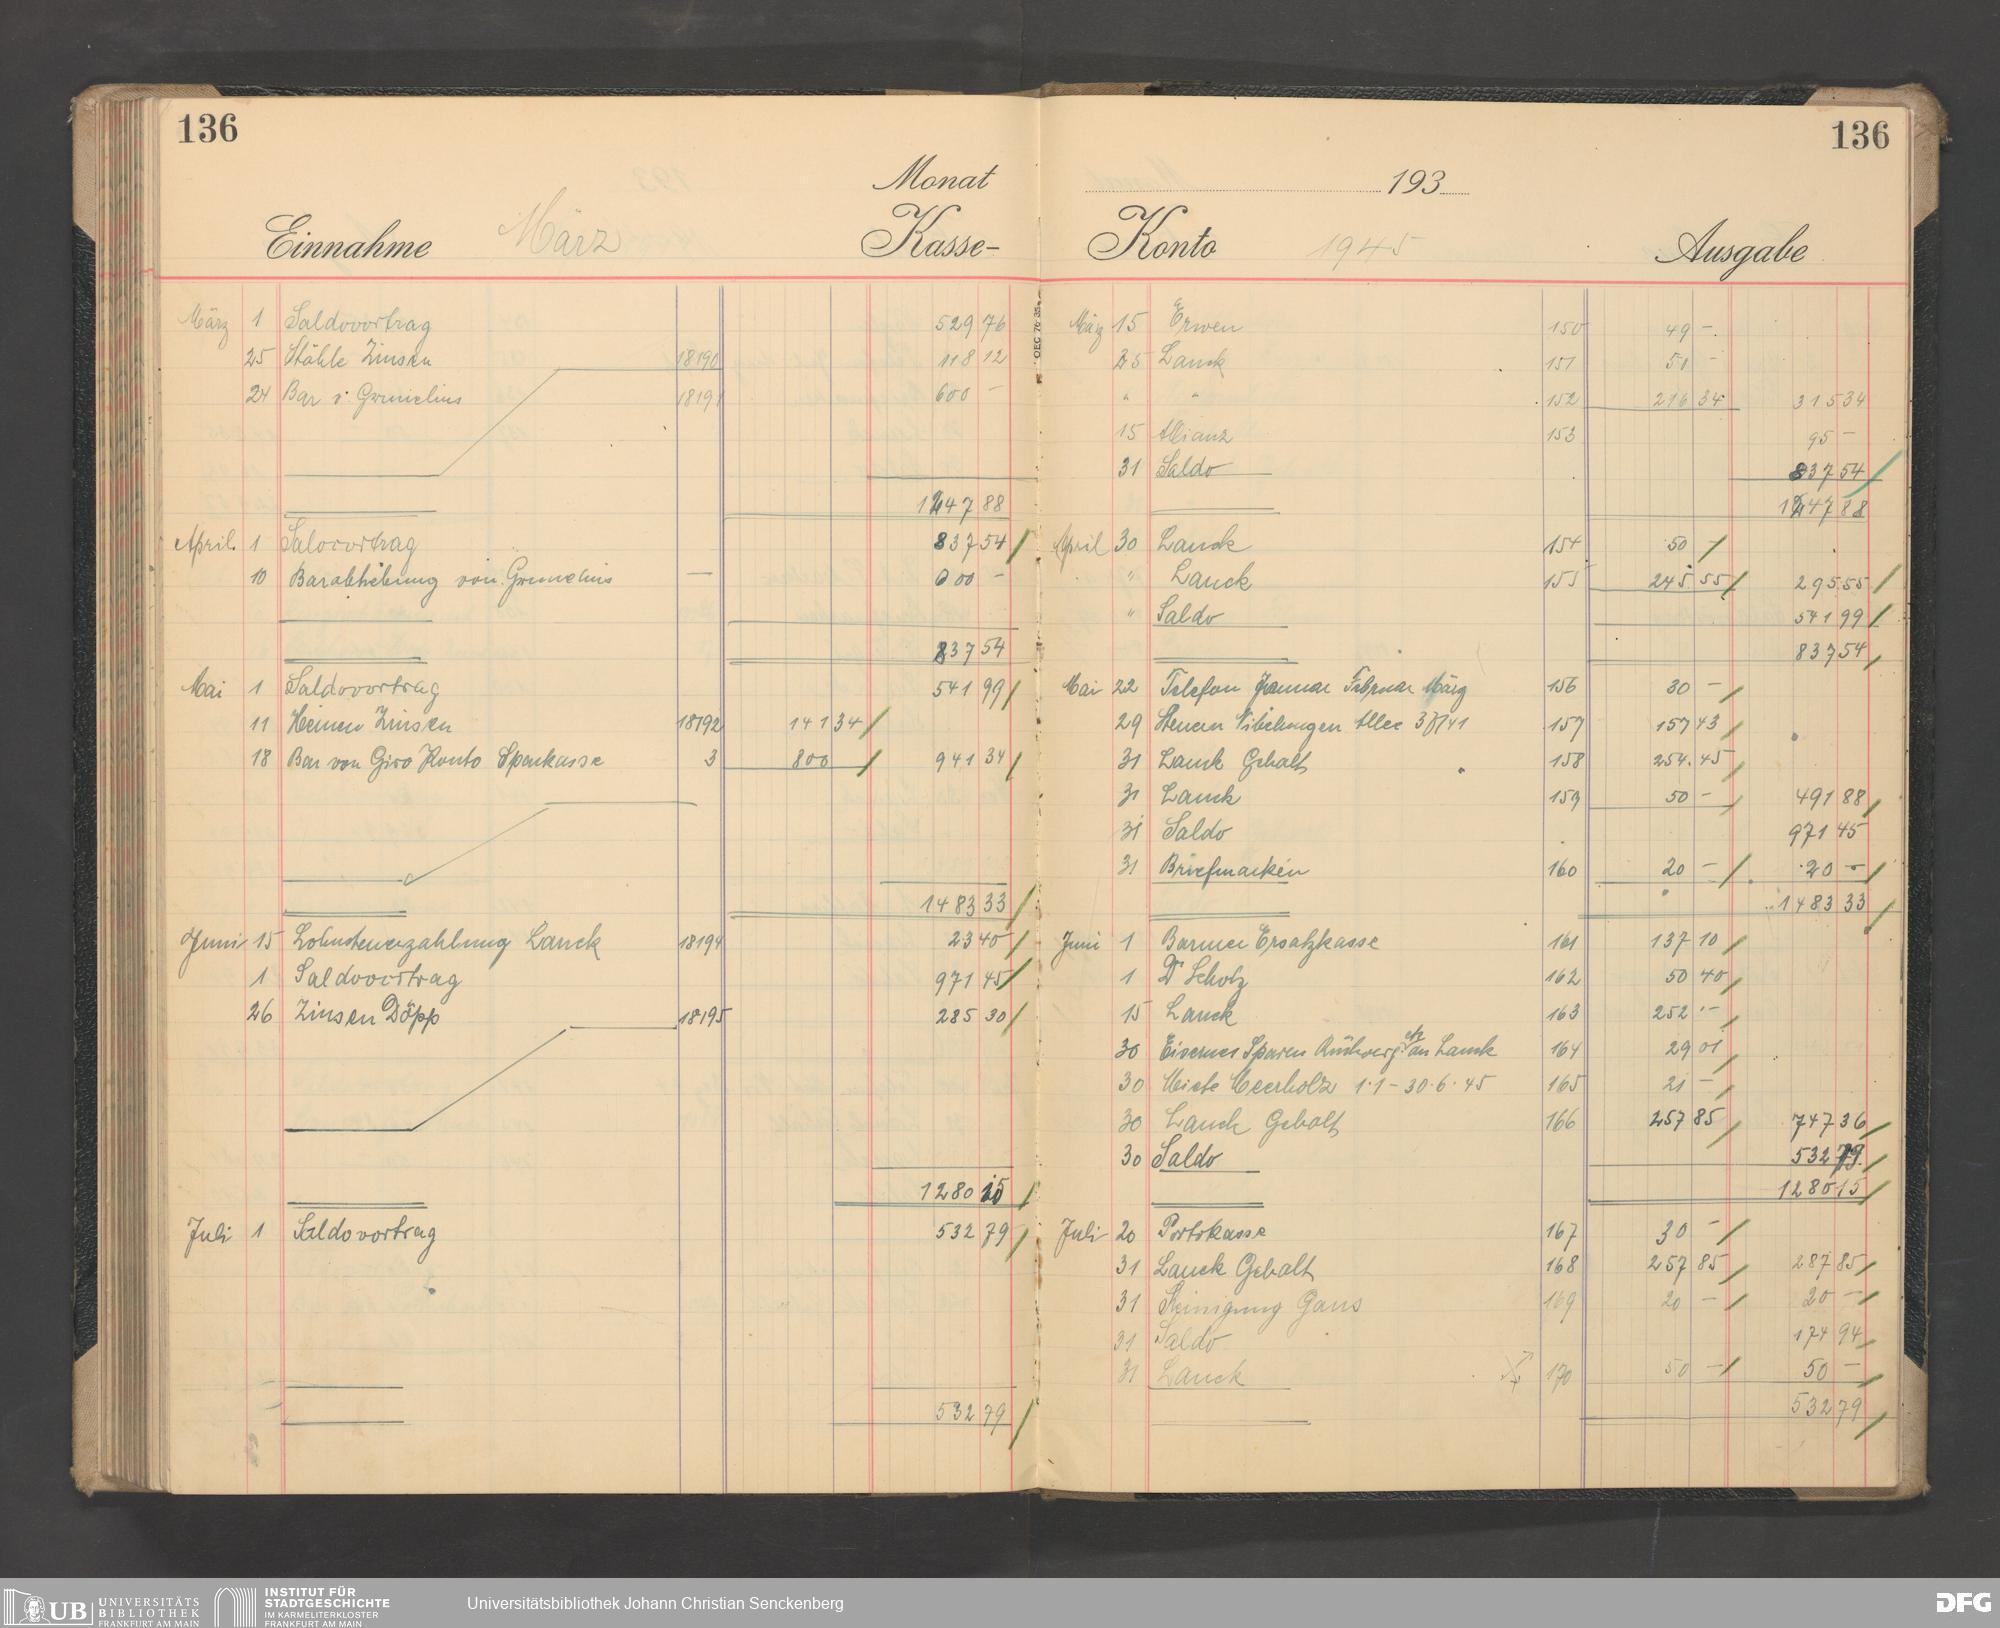 136
Monat
Einnahme März Kasse-
März 1 Saldovortrag 529 76
25 Stähle Zinsen 18190 118 12
24 Bar v. Grunelius 18191 600 –
1247 88
April 1 Saldovortrag 837 54
10 Barabhebung von Grunelius — 000 –
837 54
Mai 1 Saldovortrag 541 99
11 Heinen Zinsen 18192 141 34
18 Bar von Giro Konto Sparkasse 3 800 941 34
1483 33
Juni 15 Lohnsteuerzahlung Lanck 18194 23 40
1 Saldovortrag 971 45
26 Zinsen Döpp 18195 285 30
1280 15
Juli 1 Saldovortrag 532 79
532 79
136
193
Konto 1945 Ausgabe
März 15 150 49 –
25 Lanck 151 50 –
" " 152 216 34 315 34
15 Allianz 153 95 –
31 Saldo 837 54
1247 88
April 30 Lanck 154 50 –
" Lanck 155 245 55 295 55
" Saldo 541 99
837 54
Mai 22 Telefon Januar Februar März 156 30 –
29 Steuern Nibelungen Allee 37/41 157 157 43
31 Lanck Gehalt 158 254.45
31 Lanck 159 50 – 491 88
31 Saldo 971 45
31 Briefmarken 160 20 – 20 –
1483 33
Juni 1 Barmer Ersatzkasse 161 137 10
1 Dr Scholz 162 50 40
15 Lanck 163 252 –
30 Eisernes Sparen etz an Lanck 164 29 01
30 Miete Meerholz 1.1 – 30.6.45 165 21 –
30 Lanck Gehalt 166 257 85 747 36
30 Saldo 532 79
1280 15
Juli 20 Portokasse 167 30 –
31 Lanck Gehalt 168 257 85 287 85
31 Reinigung Gans 169 20 – 20 –
31 Saldo 174 94
31 Lanck 170 50 – 50 –
532 79
UB UNIVERSITÄTS
BIBLIOTHEK
FRANKFURT AM MAIN
INSTITUT FÜR
STADTGESCHICHTE
IM KARMELITERKLOSTER
FRANKFURT AM MAIN
Universitätsbibliothek Johann Christian Senckenberg
DFG